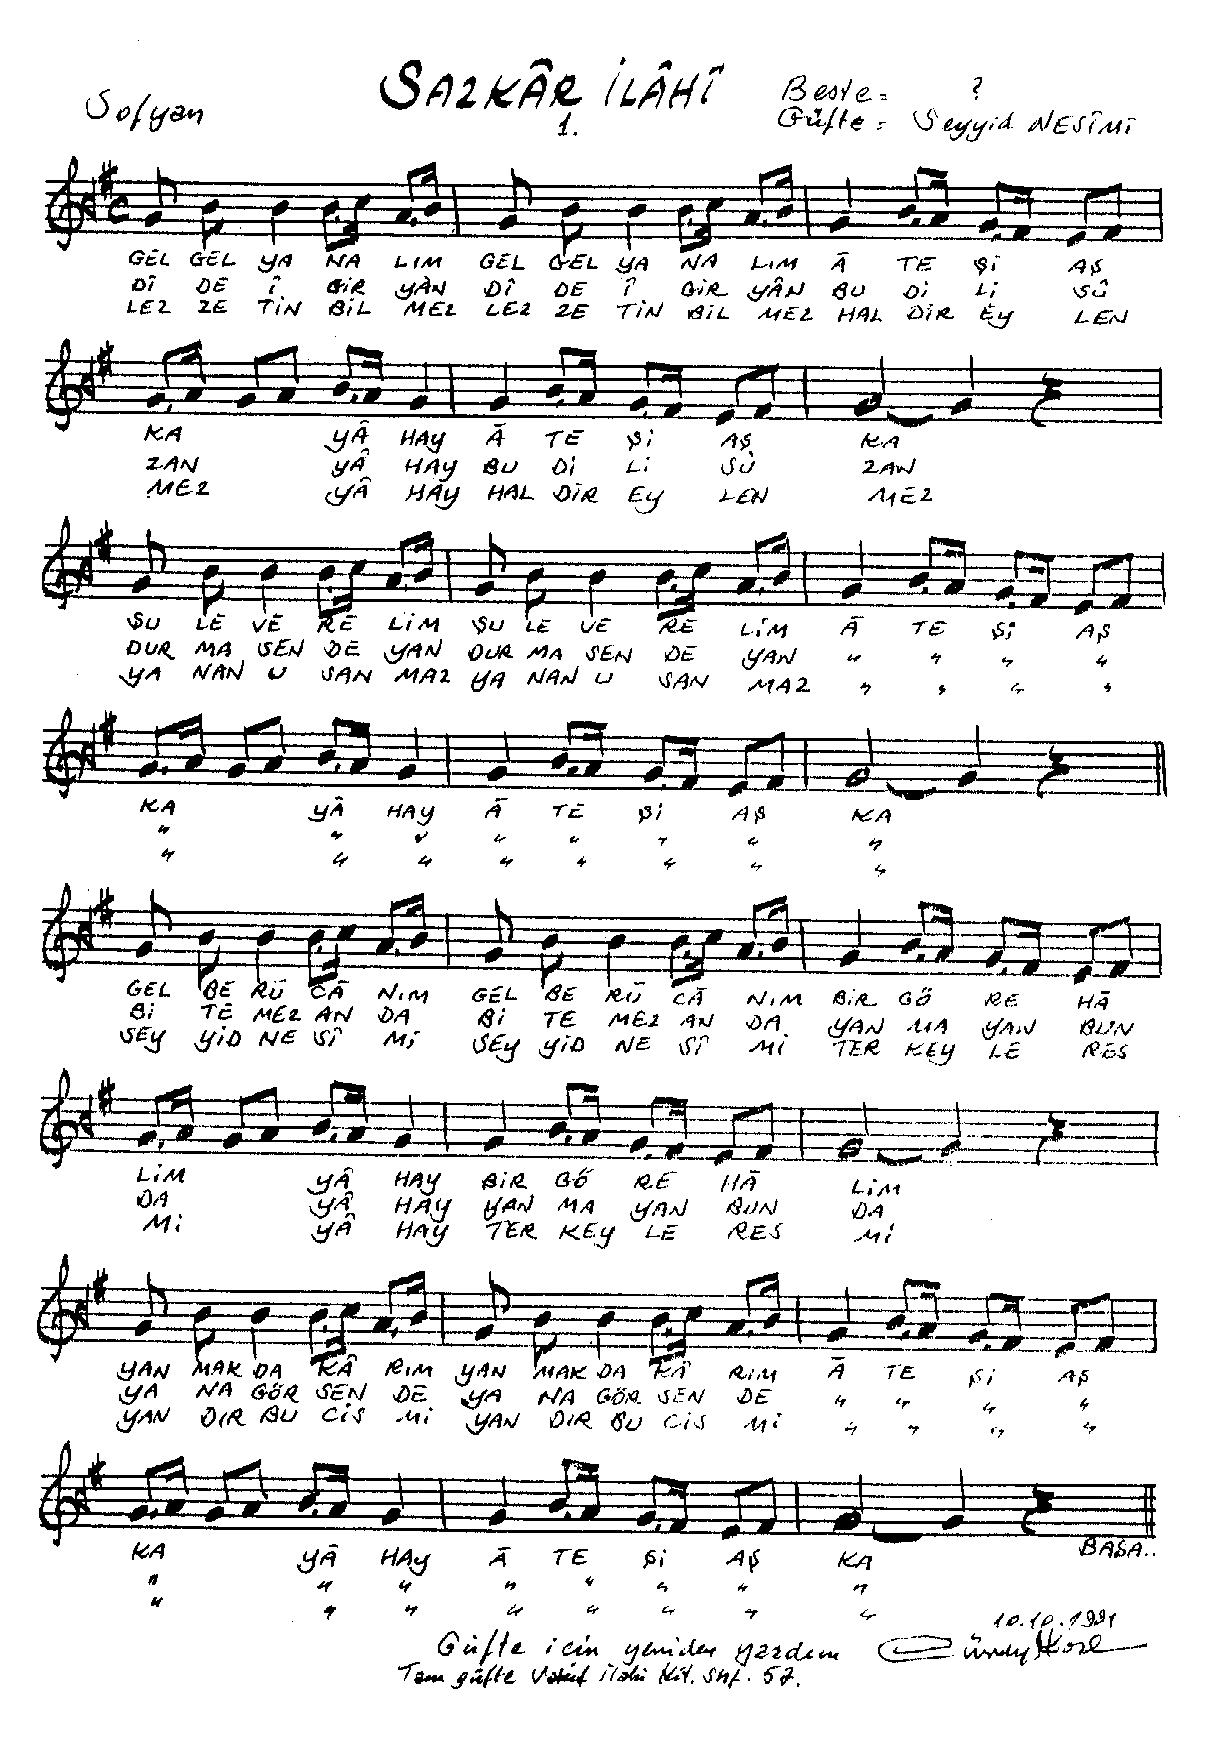 SAZKÂR İLÂHÎ
Sofyan
1.
Beste = ?
Güfte = Seyyid NESÎMÎ
GEL GEL YA NA LIM GEL GEL YA NA LIM Ā TE Şİ AŞ
DÎ DE Î GİR YÂN DÎ DE Î GİR YÂN BU Dİ Lİ SÛ
LEZ ZE TİN BİL MEZ LEZ ZE TİN BİL MEZ HAL DİR EY LEN
KA YÂ HAY Ā TE Şİ AŞ KA
ZAN YÂ HAY BU Dİ Lİ SÛ ZAN
MEZ YÂ HAY HAL DİR EY LEN MEZ
ŞU LE VE RE LİM ŞU LE VE RE LİM Ā TE Şİ AŞ
DUR MA SEN DE YAN DUR MA SEN DE YAN " " " "
YA NAN U SAN MAZ YA NAN U SAN MAZ " " " "
KA YÂ HAY Ā TE Şİ AŞ KA
" " " " " " " "
" " " " " " " "
GEL BE RÜ CÂ NIM GEL BE RÜ CÂ NIM BİR GÖ RE HĀ
Bİ TE MEZ AN DA Bİ TE MEZ AN DA YAN MA YAN BUN
SEY YİD NE SÎ Mİ SEY YİD NE SÎ Mİ TER KEY LE RES
LİM YÂ HAY BİR GÖ RE HĀ LİM
DA YÂ HAY YAN MA YAN BUN DA
Mİ YÂ HAY TER KEY LE RES Mİ
YAN MAK DA KÂ RIM YAN MAK DA KÂ RIM Ā TE Şİ AŞ
YA NA GÖR SEN DE YA NA GÖR SEN DE " " " "
YAN DIR BU CİS Mİ YAN DIR BU CİS Mİ " " " "
KA YÂ HAY Ā TE Şİ AŞ KA
BAŞA..
" " " " " " " "
" " " " " " " "
10.10.1991
Güfte için yeniden yazdım
Tam güfte Vakıf İlâhi Kit. Shf. 57.